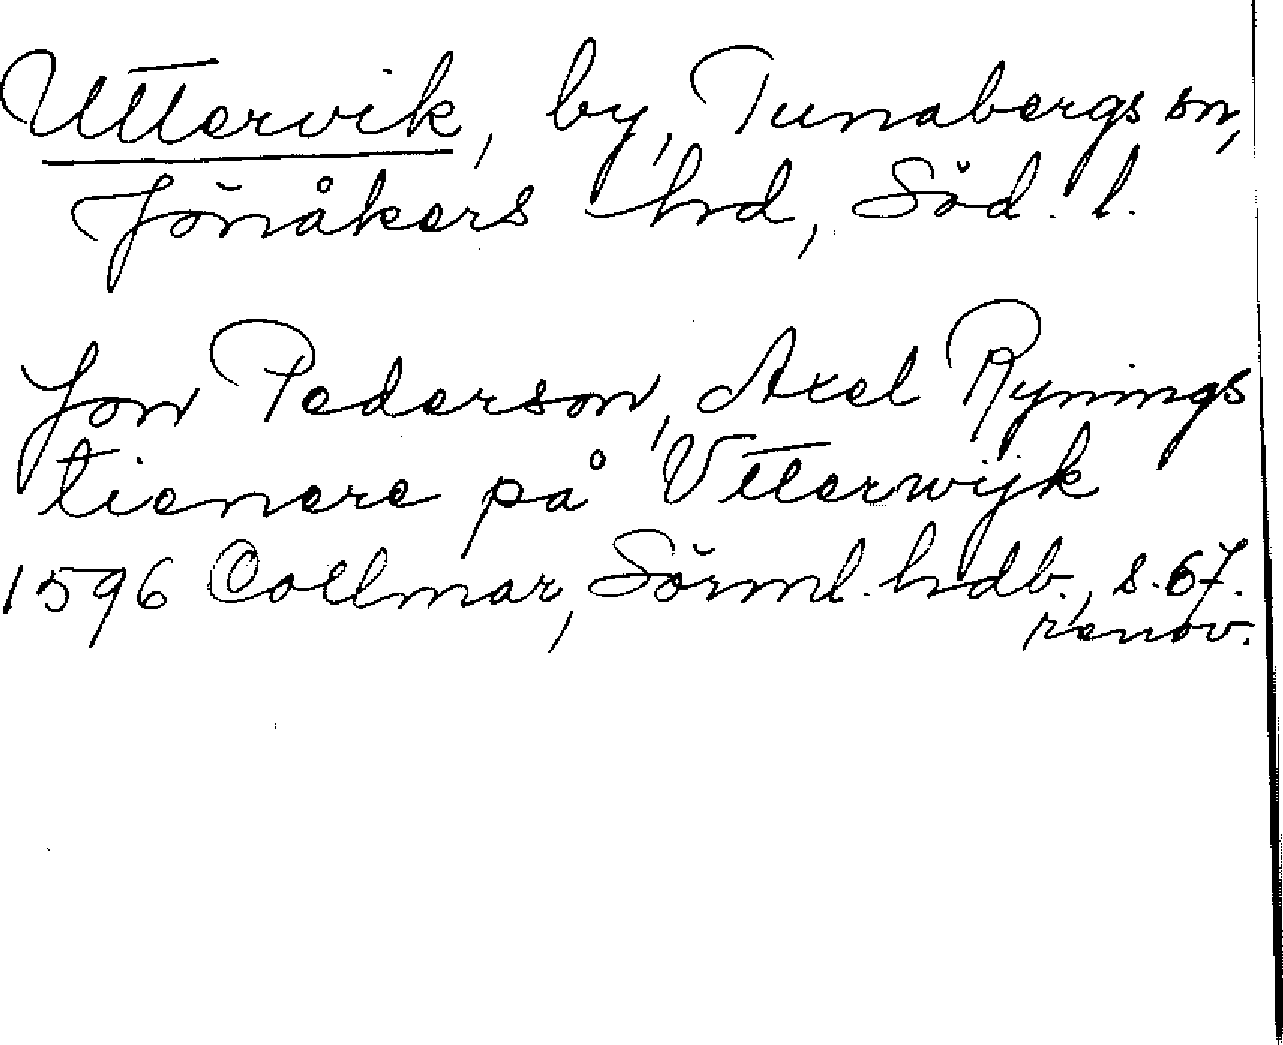 Uttervik, by, Tunabergs sn,
Jönåkers hrd, Söd. l.
Jon Pederson, Axel Rynings
tienere på Vtterwijk
1596 Collmar, Sörml. hrdb., s. 67.
renov.